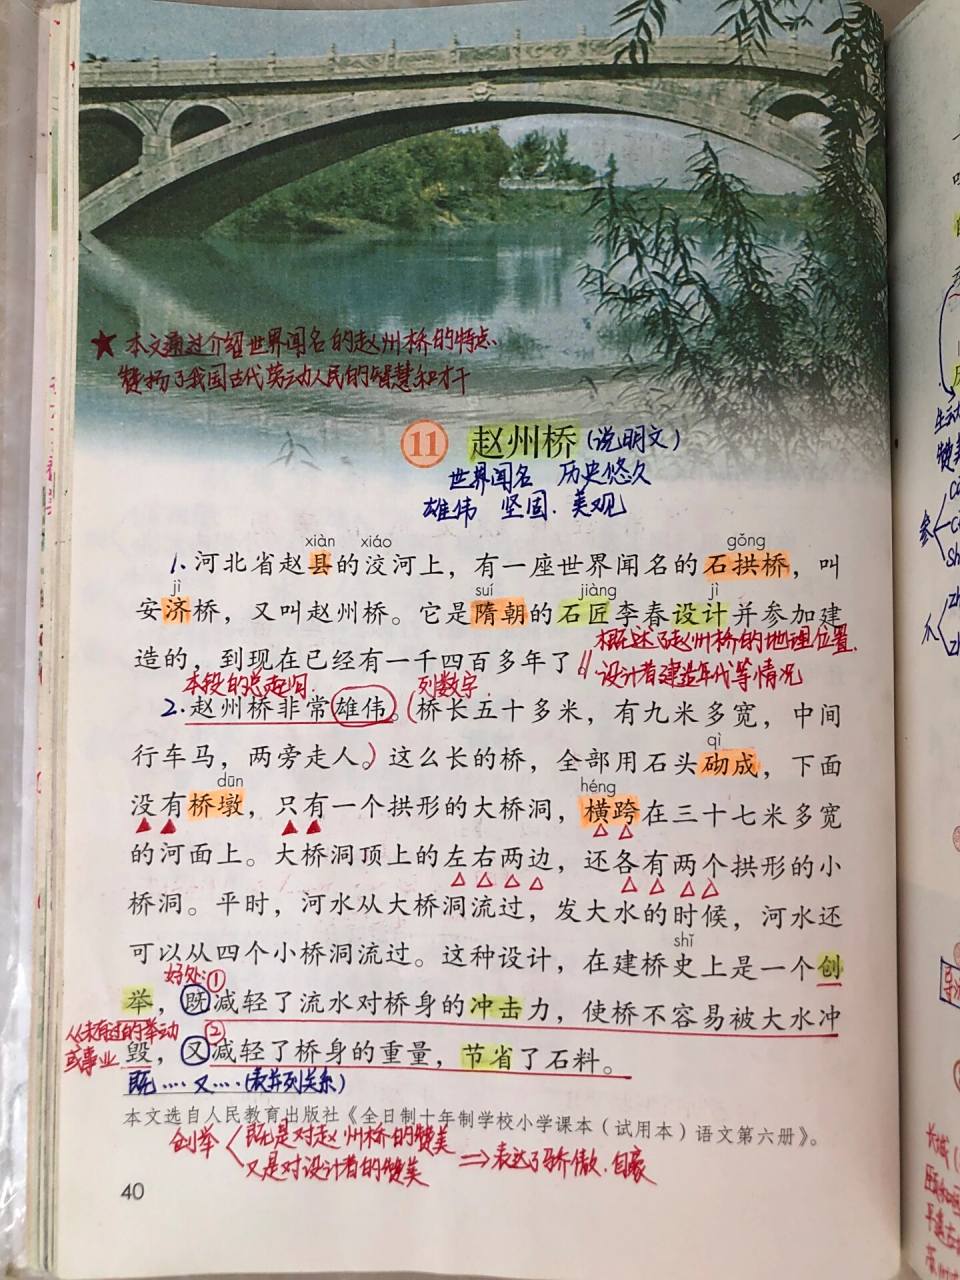 ★ 本文通过介绍世界闻名的赵州桥的特点
赞扬了我国古代劳动人民的智慧和才干
11 赵州桥(说明文)
世界闻名 历史悠久
雄伟 坚固、美观
xiàn xiáo gǒng
1、河北省赵县的洨河上，有一座世界闻名的石拱桥，叫
jì suí jiàng jì
安济桥，又叫赵州桥。它是隋朝的石匠李春设计并参加建
概述了赵州桥的地理位置、
造的，到现在已经有一千四百多年了。
设计者建造年代等情况
本段的总起句 列数字
2.赵州桥非常雄伟。(桥长五十多米，有九米多宽，中间
行车马，两旁走人。)这么长的桥，全部用石头砌成，下面
qì
dūn héng
没有桥墩，只有一个拱形的大桥洞，横跨在三十七米多宽
的河面上。大桥洞顶上的左右两边，还各有两个拱形的小
桥洞。平时，河水从大桥洞流过，发大水的时候，河水还
可以从四个小桥洞流过。这种设计，在建桥史上是一个创
shǐ
好处:①
举，既减轻了流水对桥身的冲击力，使桥不容易被大水冲
从未有过的举动
或事业
②
毁，又减轻了桥身的重量，节省了石料。
既····又····(表并列关系)
本文选自人民教育出版社《全日制十年制学校小学课本（试用本）语文第六册》。
创举 既是对赵州桥的赞美
又是对设计者的赞美
⇒表达了骄傲、自豪
40
参
爪
长城